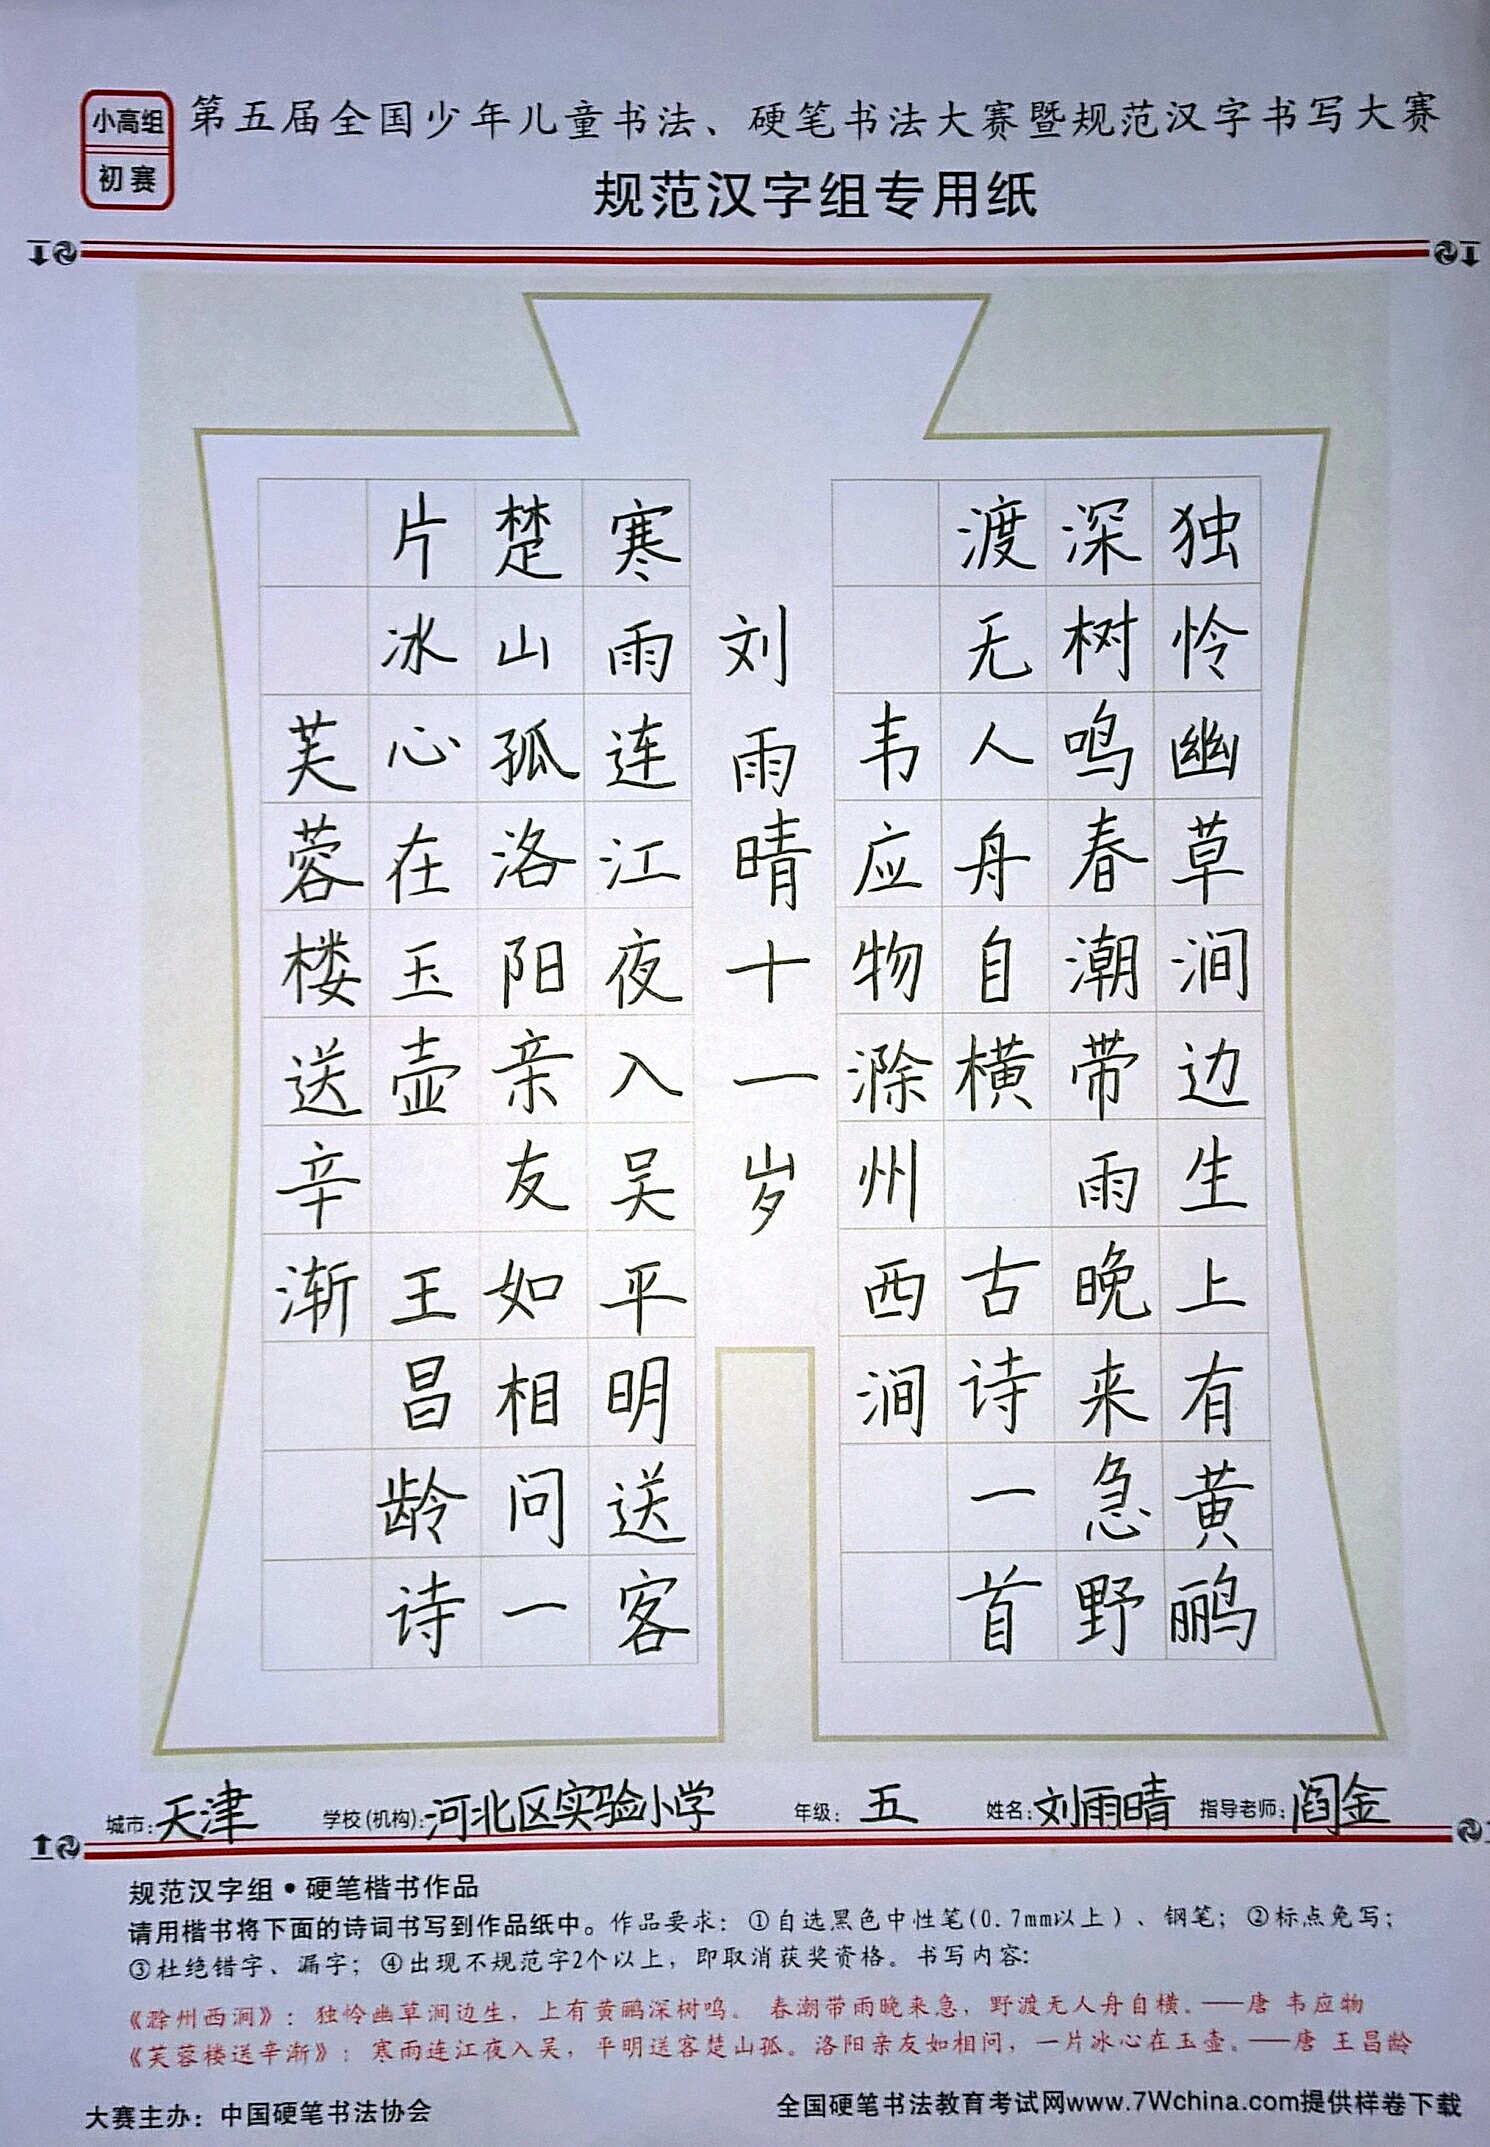 小高组
初赛
第五届全国少年儿童书法、硬笔书法大赛暨规范汉字书写大赛
规范汉字组专用纸
独怜幽草涧边生上有黄鹂
深树鸣春潮带雨晚来急野
渡无人舟自横 古诗一首
韦应物滁州西涧
刘雨晴十一岁
寒雨连江夜入吴平明送客
楚山孤洛阳亲友如相问一
片冰心在玉壶 王昌龄诗
芙蓉楼送辛渐
城市：天津 学校(机构)：河北区实验小学 年级：五 姓名：刘雨晴 指导老师：阎金
规范汉字组•硬笔楷书作品
请用楷书将下面的诗词书写到作品纸中。作品要求：①自选黑色中性笔(0.7mm以上)、钢笔；②标点免写；
③杜绝错字、漏字；④出现不规范字2个以上，即取消获奖资格。书写内容：
《滁州西涧》：独怜幽草涧边生，上有黄鹂深树鸣。春潮带雨晚来急，野渡无人舟自横。——唐 韦应物
《芙蓉楼送辛渐》：寒雨连江夜入吴，平明送客楚山孤。洛阳亲友如相问，一片冰心在玉壶。——唐 王昌龄
大赛主办：中国硬笔书法协会 全国硬笔书法教育考试网www.7Wchina.com提供样卷下载